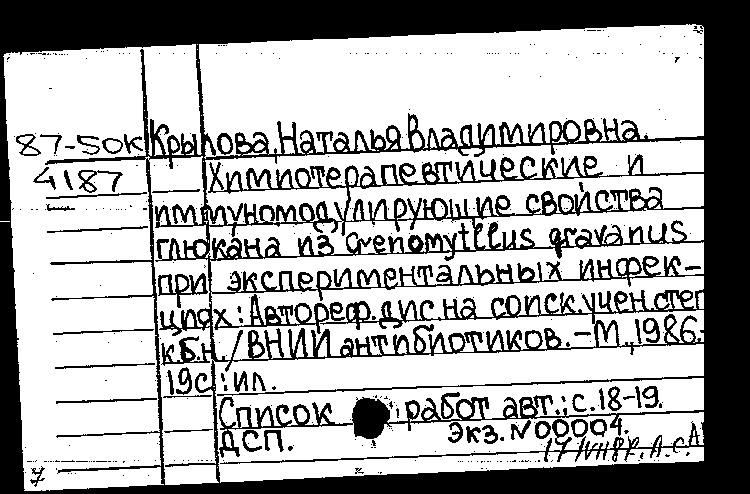 87-50К Крылова, Наталья Владимировна.
4187 Химиотерапевтические и
иммуномодулирующие свойства
глюкана из Crenomytilus gravanus
при экспериментальных инфек-
циях: Автореф. дис. на соиск. учен. степ
к.б.н. / ВНИИ антибиотиков. – М., 1986.-
19с.: ил.
Список работ авт.: с. 18-19.
ДСП. Экз. N 00004.
7